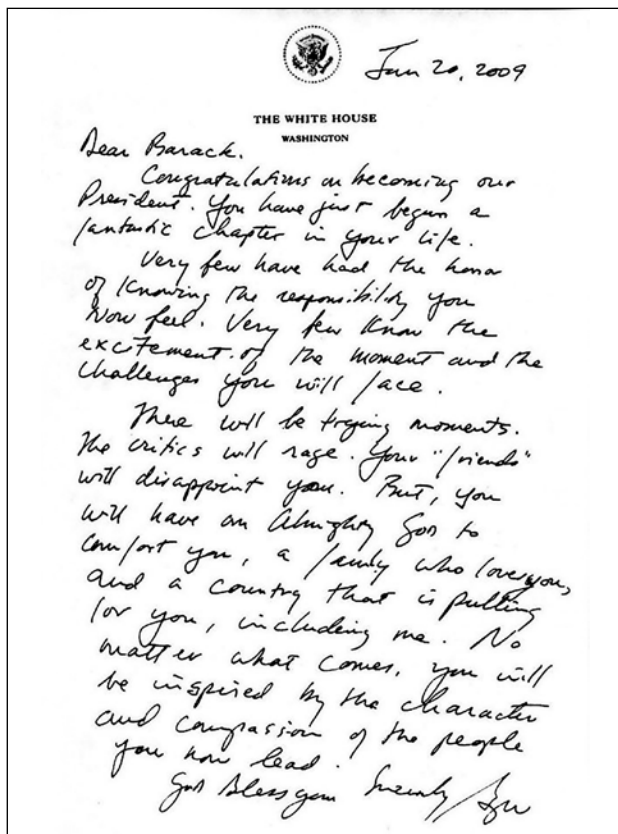 Jan 20, 2009
THE WHITE HOUSE
WASHINGTON
Dear Barack.
Congratulations on becoming our
President. You have just begun a
fantastic chapter in your life.
Very few have had the honor
of knowing the responsibility you
now feel. Very few know the
excitement of the moment and the
challenges you will face.
There will be trying moments.
The critics will rage. Your "friends"
will disappoint you. But, you
will have an Almighty God to
comfort you, a family who loves you,
and a country that is pulling
for you, including me. No
matter what comes, you will
be inspired by the character
and compassion of the people
you now lead.
God bless you
Sincerely, GW